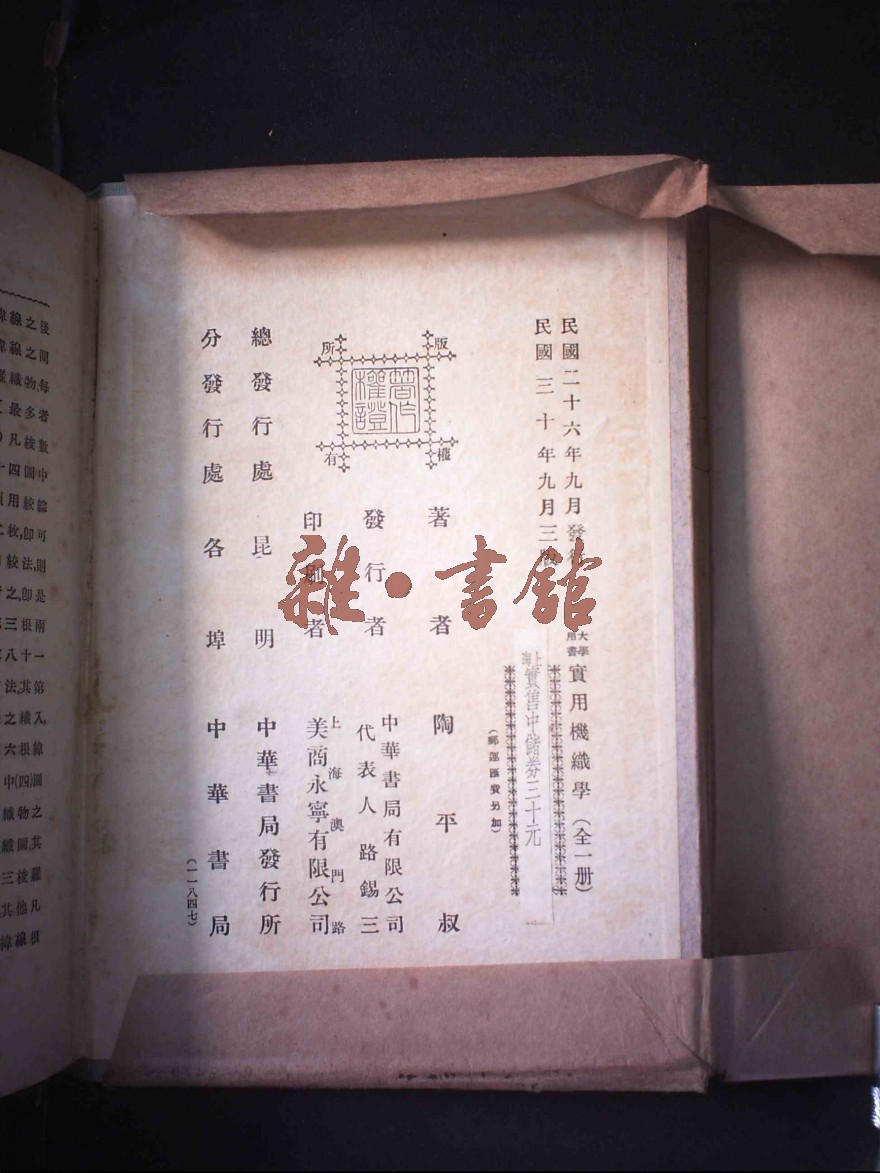 民國二十六年九月發行
民國三十年九月三版
大學用書 實用機織學（全一册）
實售中儲券三十元
（郵運匯費另加）
版權所有
著作權證
著者 陶平叔
發行者 中華書局有限公司
代表人路錫三
印刷者 上海澳門路
美商永寧有限公司
總發行處 昆明 中華書局發行所
分發行處 各埠 中華書局
（一一八四七）
雜·書館
緯線之後
緯線之間
織物,每
最多者
凡梭數
十四圖中
用絞綜
二枚,卽可
絞法,則
之,卽是
三根兩
十八第一
法,其第
之織入,
六根線
中(四)圖
織物之
織圖,其
三梭羅
其他凡
緯線根